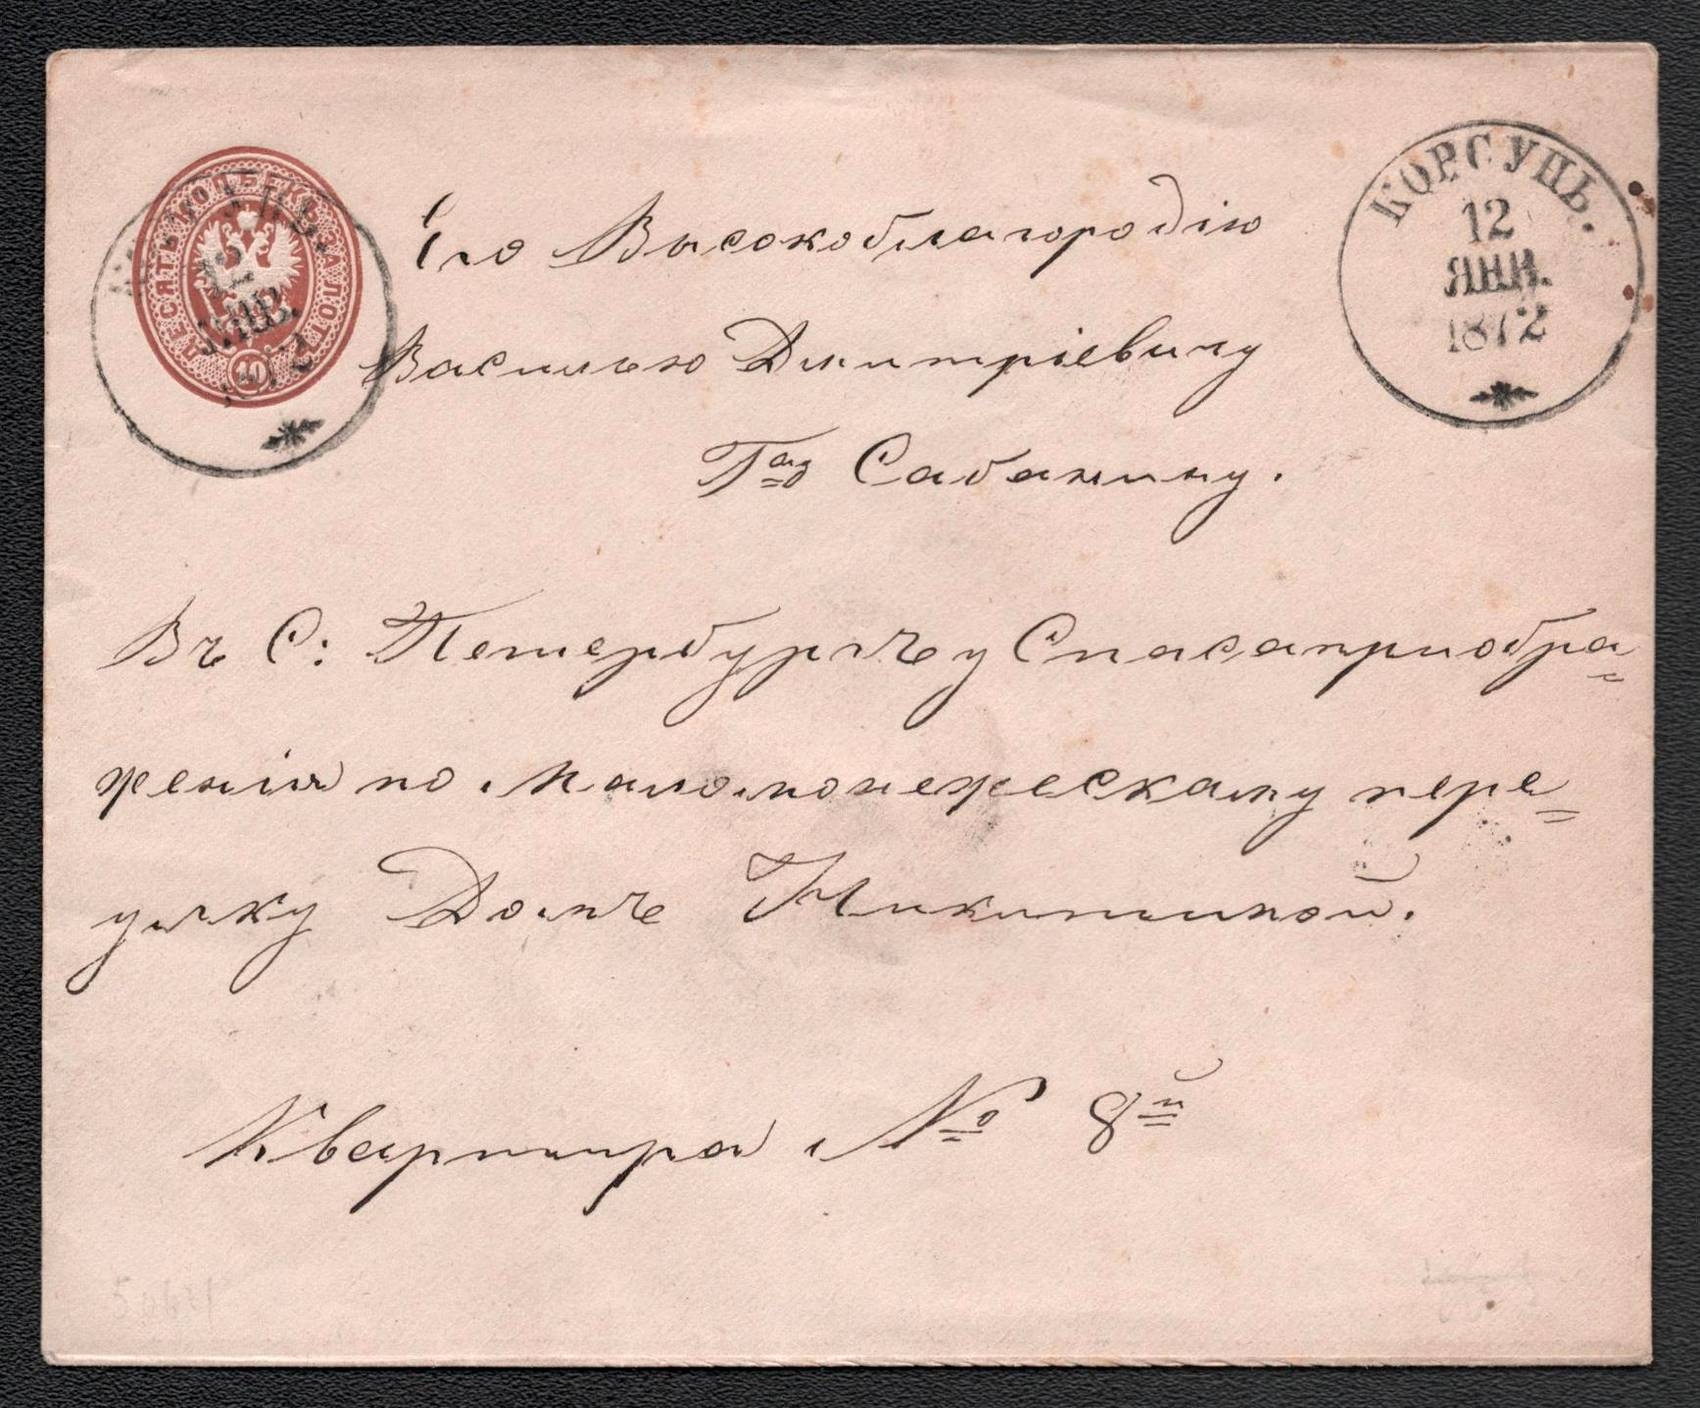 ДЕСЯТЬ КОПѢЕКЪ ЗА ЛОТЪ
10
КОРСУНЬ.
12
ЯНВ.
1872
Его Высокоблагородію
Василью Дмитріевичу
Гну Сабанину.
Въ С: Петербургѣ у Спасаприобра=
женія по Маломожескаму пере=
улку Домѣ Никитиной.
Квартира № 8й